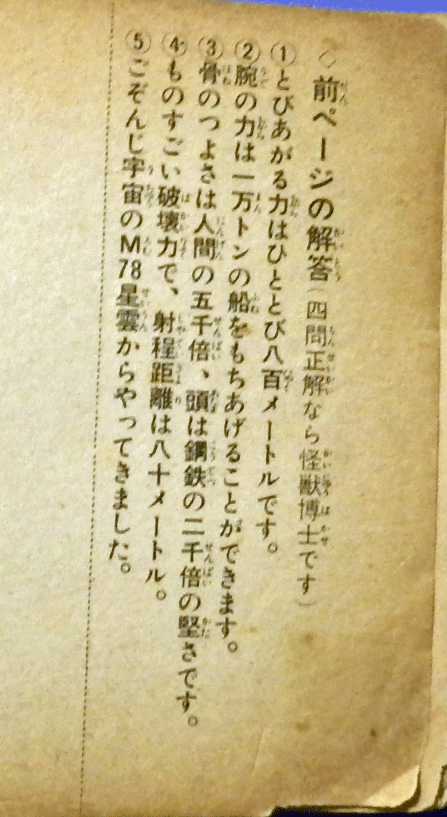 ◇前ページの解答(四問正解なら怪獣博士です)
①とびあがる力はひととび八百メートルです。
②腕の力は一万トンの船をもちあげることができます。
③骨のつよさは人間の五千倍、頭は鋼鉄の二千倍の堅さです。
④ものすごい破壊力で、射程距離は八十メートル。
⑤ごぞんじ宇宙のM78星雲からやってきました。